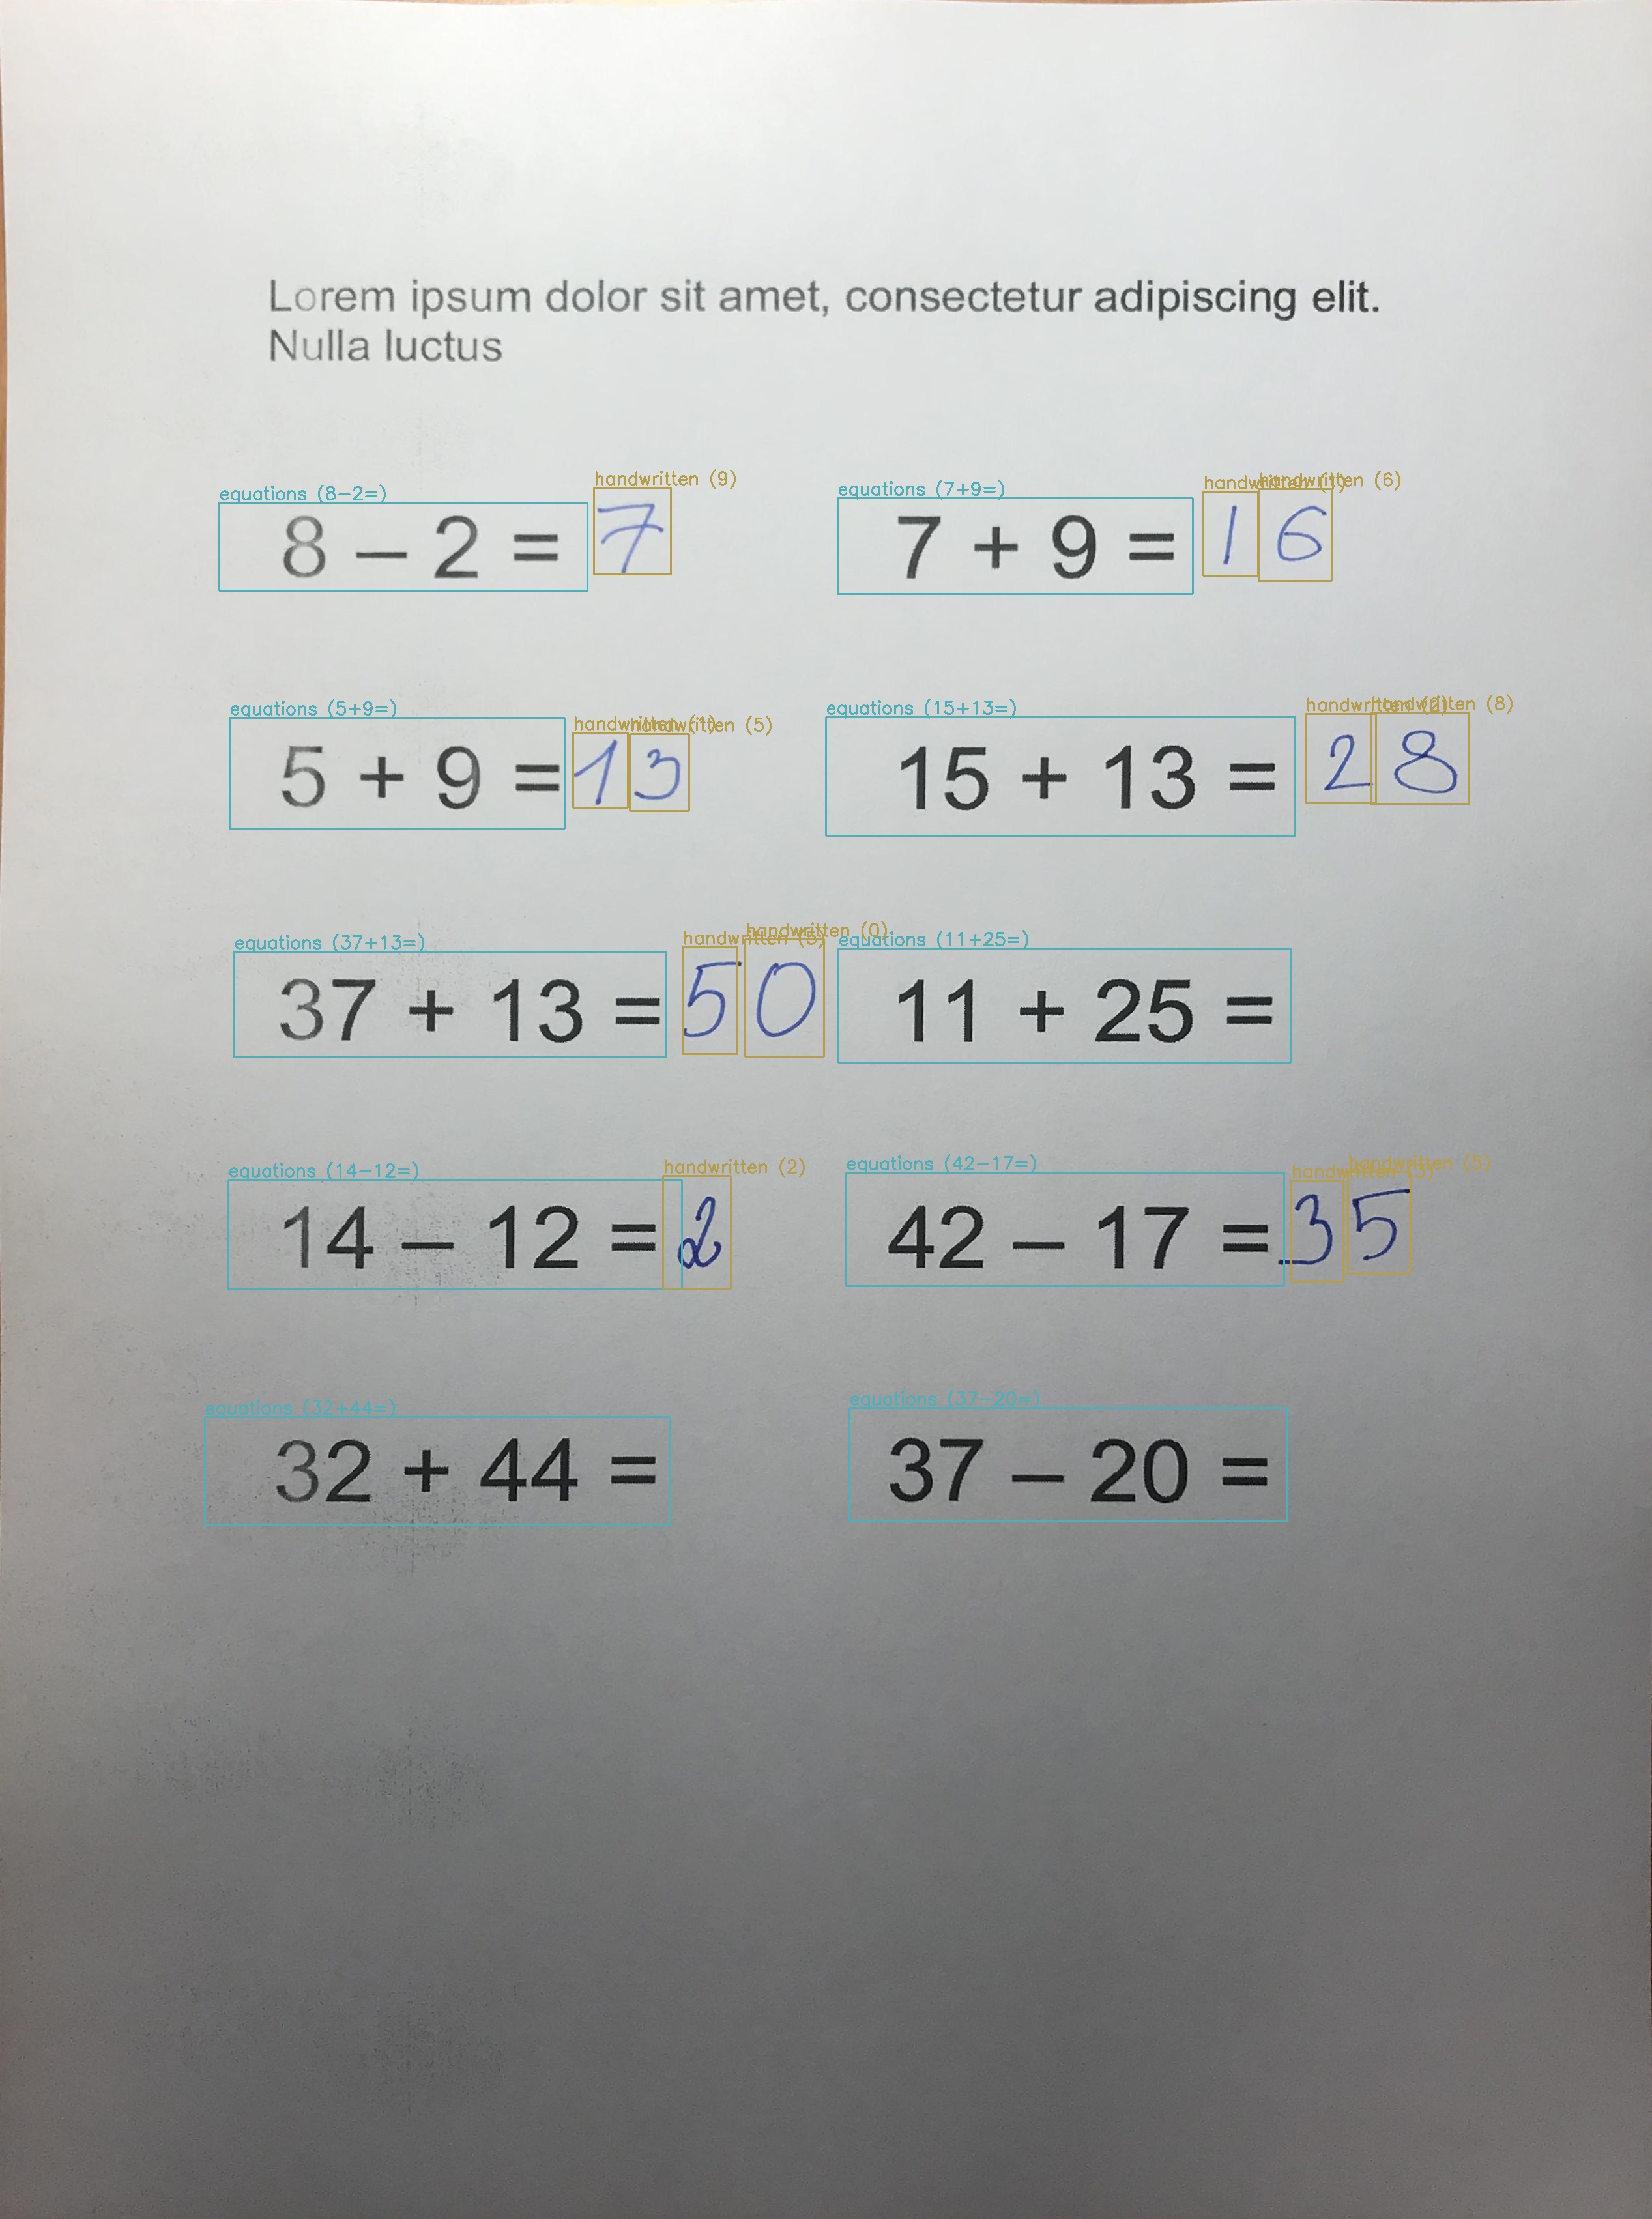 Lorem ipsum dolor sit amet, consectetur adipiscing elit.
Nulla luctus
equations (8-2=) handwritten (9) equations (7+9=) handwritten (1) handwritten (6)
8 – 2 = 7 7 + 9 = 16
equations (5+9=) handwritten (1) handwritten (5) equations (15+13=) handwritten (2) handwritten (8)
5 + 9 = 13 15 + 13 = 28
equations (37+13=) handwritten (5) handwritten (0) equations (11+25=)
37 + 13 = 50 11 + 25 =
equations (14-12=) handwritten (2) equations (42-17=) handwritten (3) handwritten (5)
14 – 12 = 2 42 – 17 = 35
equations (32+44=) equations (37-20=)
32 + 44 = 37 – 20 =